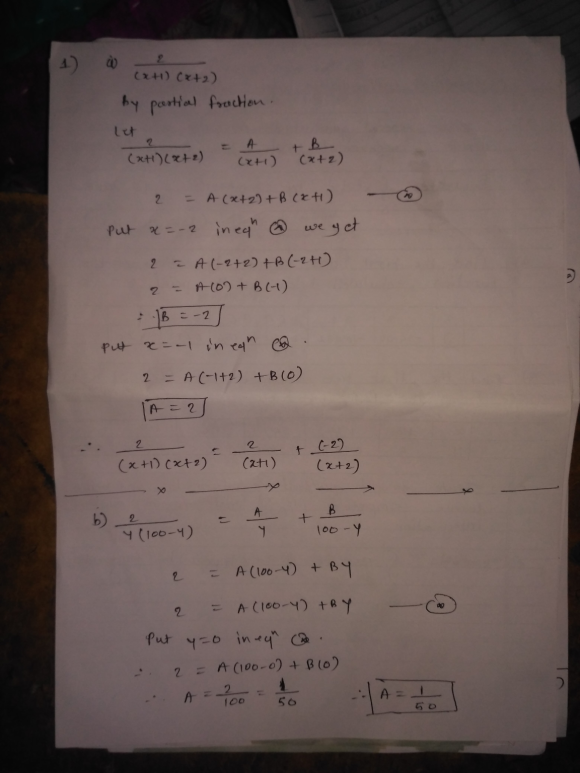 1) a) 2 / (x+1) (x+2)
By partial fraction.
Let
2 / (x+1)(x+2) = A / (x+1) + B / (x+2)
2 = A(x+2)+B(x+1) —
Put x = -2 in eqⁿ we get
2 = A(-2+2)+B(-2+1)
2 = A(0) + B(-1)
∴ B = -2
Put x = -1 in eqⁿ .
2 = A(-1+2) + B(0)
A = 2
∴ 2 / (x+1) (x+2) = 2 / (x+1) + (-2) / (x+2)
b) 2 / y(100-y) = A / y + B / 100-y
2 = A(100-y) + By
2 = A(100-y) + By —
Put y=0 in eqⁿ .
∴ 2 = A(100-0) + B(0)
∴ A = 2/100 = 1/50 ∴ A = 1/50